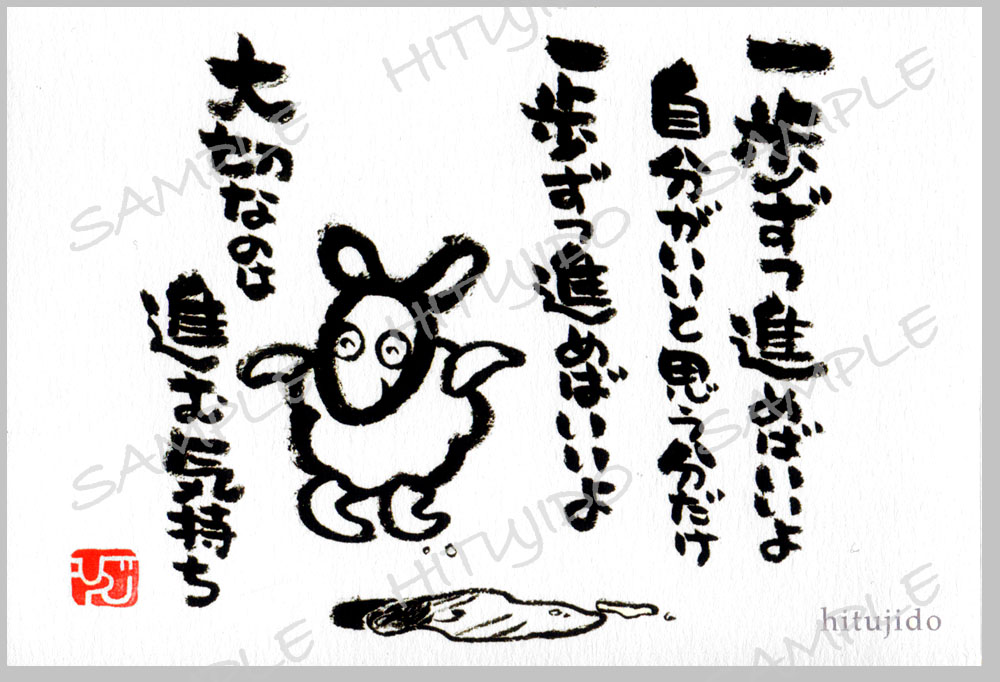 一歩ずつ進めばいいよ
自分がいいと思う分だけ
一歩ずつ進めばいいよ
大切なのは
進む気持ち
ひつじ
hitujido
HITUJIDO
SAMPLE
SAMPLE
HITUJIDO
SAMPLE
SAMPLE
HITUJIDO
SAMPLE
SAMPLE